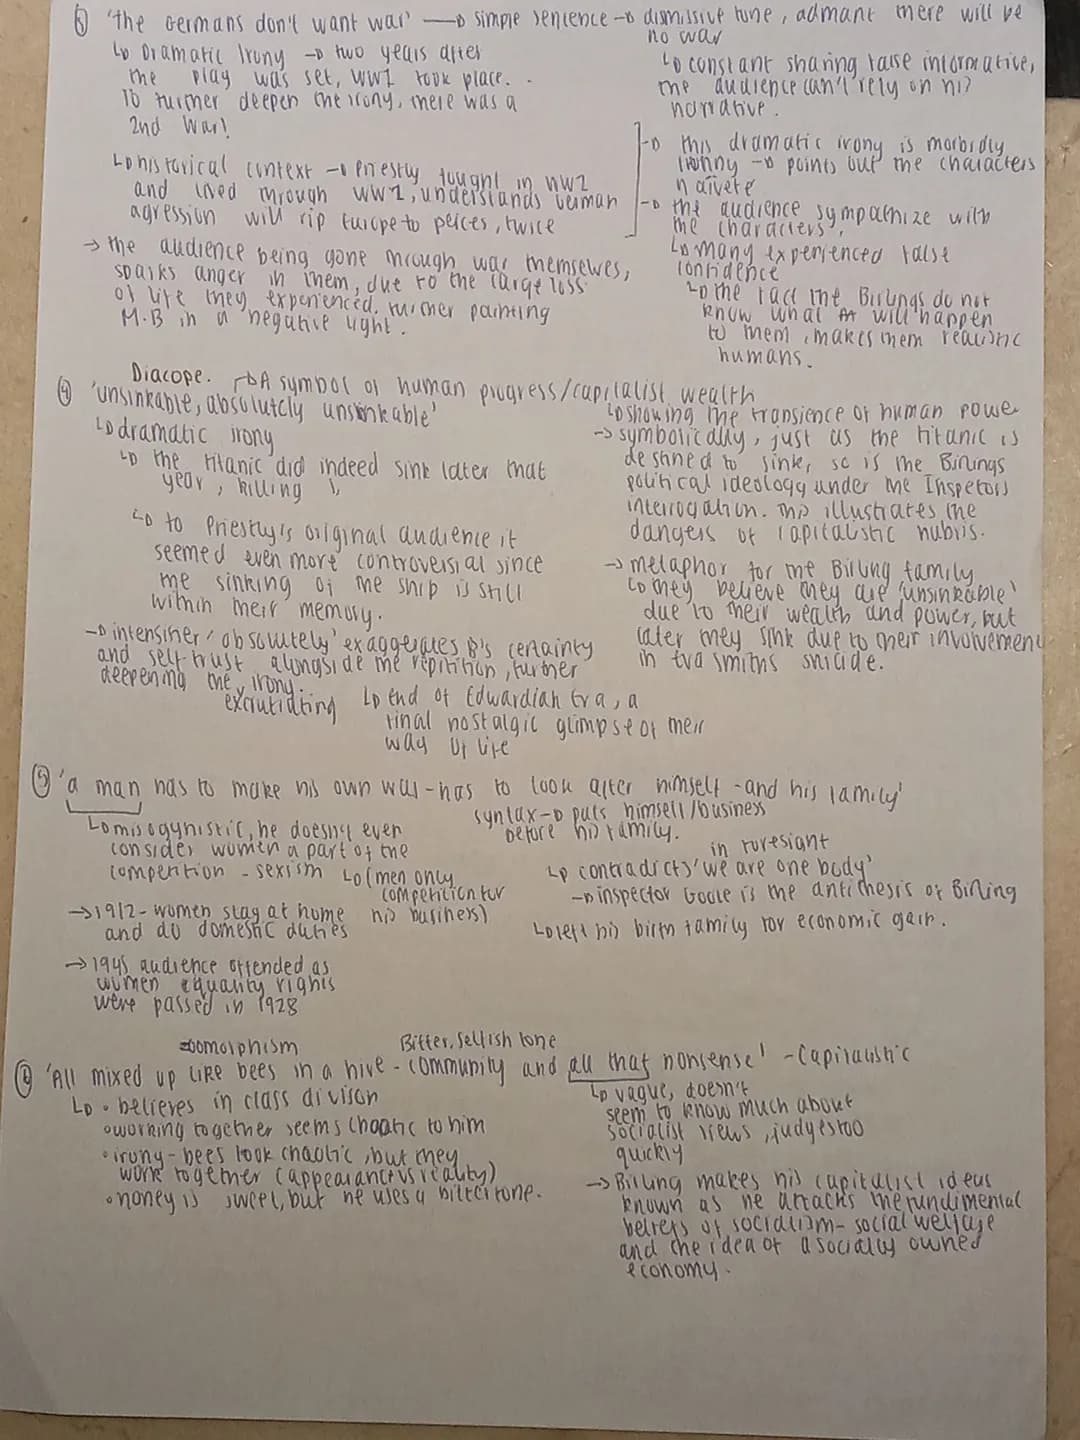 ③ 'the Germans don't want war' → simple sentence → dismissive tone, admant there will be no war
↳ Dramatic Irony → two years after
the play was set, WW1 took place.
To further deepen the irony, there was a
2nd War!
↳ constant sharing false informative,
the audience can't rely on his
narrative.
↳ historical context → Priestly fought in WW2
and lived through WW1, understands German
agression will rip Europe to peices, twice
→ this dramatic irony is morbidly
funny → points out the characters
naivete
→ the audience sympathize with
the characters,
↳ many experienced false
confidence
↳ the fact the Birlings do not
know what will happen
to them, makes them realistic
humans.
→ the audience being gone through war themselves,
sparks anger in them, due to the large loss
of life they experienced. Further painting
M.B in a negative light.
Diacope.
↱ A symbol of human progress/capitalist wealth
④ 'unsinkable, absolutely unsinkable'
↳ showing the transience of human powe
↳ dramatic irony
↳ the titanic did indeed sink later that
year, killing 1,
↳ to Priestly's original audience it
seemed even more controversial since
the sinking of the ship is still
within their memory.
→ symbolically, just as the titanic is
destined to sink, so is the Birlings
political ideology under the Inspetors
interrogation. This illustrates the
dangers of capitalistic hubris.
→ metaphor for the Birling family
↳ they believe they are 'unsinkable'
due to their wealth and power, but
later they sink due to their involvement
in Eva Smiths suicide.
→ intensifier 'absolutely' exaggerates B's certainty
and self trust alongside the repitition, further
deepening the irony.
excrutiating
↳ end of Edwardian Era, a
final nostalgic glimpse of their
way of life
⑤ 'a man has to make his own way - has to look after himself - and his family'
↳ misogynistic, he doesn't even
consider women a part of the
competition - sexism
↳ (men only
competition for
his business)
syntax → puts himself/business
before his family.
in foresight
↳ contradicts 'we are one body'
→ inspector Goole is the antithesis of Birling
↳ left his birth family for economic gain.
→ 1912 - women stay at home
and do domestic duties
→ 1945 audience offended as
women equality rights
were passed in 1928
zoomorphism
Bitter, selfish tone
⑥ 'All mixed up like bees in a hive - community and all that nonsense' - Capitalistic
↳ • believes in class divison
• working together seems choatic to him
• irony - bees look chaotic, but they
work together (appearance vs reality)
• honey is sweet, but he uses a bitter tone.
↳ vague, doesn't
seem to know much about
socialist views, judges too
quickly
→ Birling makes his capitalist ideas
known as he attacks the fundimental
beliefs of socialism - social welfare
and the idea of a socially owned
economy.